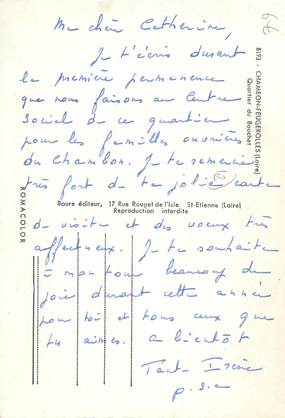 Ma chère Catherine,
Je t'écris durant
la première permanence
que nous faisons au Centre
Social de ce quartier
pour les familles ouvrières
du Chambon. Je te remercie
très fort de ta jolie carte
de visite et des voeux très
affectueux. Je te souhaite
à mon tour beaucoup de
joie durant cette année
pour toi et tous ceux que
tu aimes. à bientôt
Tante Irène
p.s.a
8193 - CHAMBON-FEUGEROLLES (Loire)
Quartier du Bouchet
Baure éditeur, 17 Rue Rouget de l'Isle. St-Etienne (Loire)
Reproduction interdite
ROMACOLOR